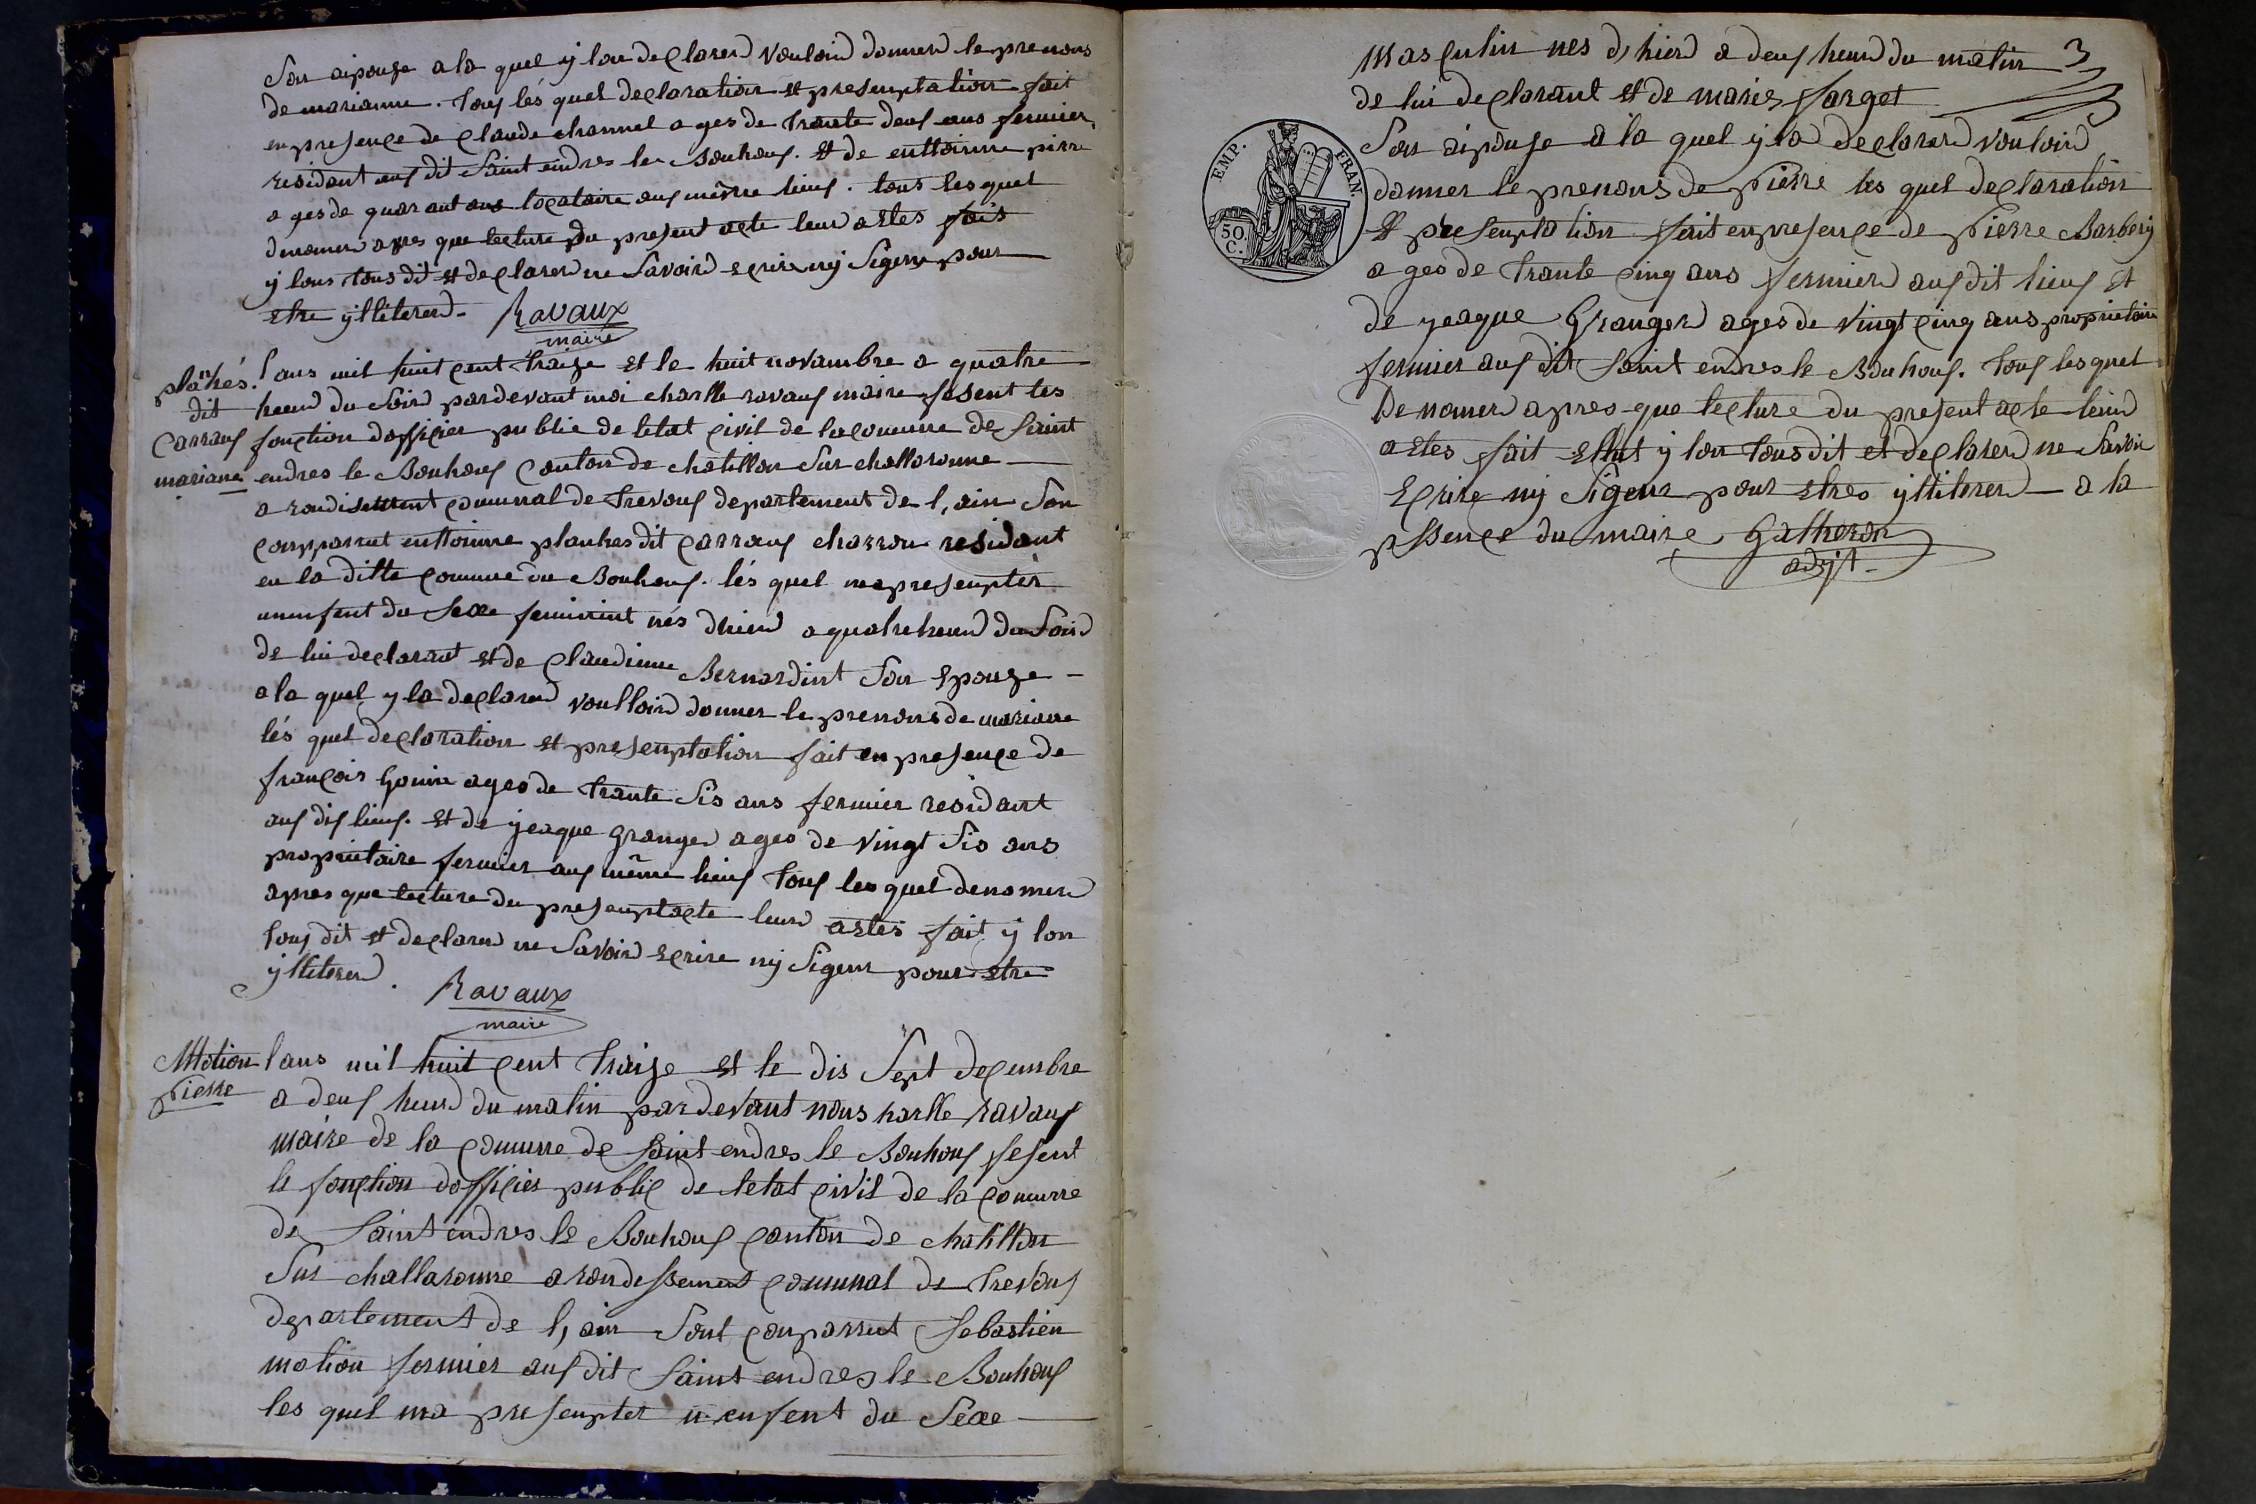 Son aipouze a la quel y lon declarer vouloir donner le prenons
de marianne. tous lés quel declaration et presemptation fait
en presence de Claude channel ages de trante deus ans fermier
residant aus dit Saint endres le Bouhous. et de enttoinne pirre
ages de quarant ans locataire aus même lieus. tous les quel
denomer apres que lecture du present acte leur astes fait
y lons tous dit et declarer ne Savoir ecrire ny Sigenr pour
estre ylliterer. Ravaux
maire
planhés. l'ans mil huit cent traize et le huit novambre a quatre
dit heurd du Soird pardevant moi charlle ravaus maire fesent les
Carraus fonction dofficier public de letat civil de la comunne de Saint
mariane endres le Bouhous Canton de chatillon Sur challaronne
arondisement comunal de trevous departement de l,ain Son
comparrut enttoinne planhes dit Carraus charron residant
en la ditte comune du Bouhous. lés quel ma presempter
un enfent du Sexe feminint nés dhierd a quatre heurd du Soird
de lui declarant et de Claudinne Bernardint Son Epouze
a la quel y la declarer voulloird donner le prenons de mariane
lés quel declaration et presemptation fait en presence de
françois Gouin ages de trante Sis ans fermier residant
aus dis lieus. et de yeaque Granger ages de vingt Sis ans
proprietaire fermier aus même lieus tous les quel denomer
apres que lecture du presempt acte leurd astes fait y lon
tous dit et declarer ne Savoird ecrire ny Sigenr pour estre
ylliterer. Ravaux
maire
Mtotion l'ans mil huit cent traize et le dis Sept decembre
Pierre a deus heurd du matin pardevant nous harlle ravaus
maire de la comunne de Saint endres le Bouhous fesent
le fonction dofficier public de letat civil de la comunne
de Saint endres le Bouhous canton de chatillon
Sur challaronne arondessement comunal de trevous
departement de l,ain Sont comparrut Sebastien
motion fermier aus dit Saint endres le Bouhous
les quel ma presempter un enfent du Sexe
masculin nes d,hierd a deus heurd du matin
de lui declarant et de marie farget
Son aipouse a la quel y la declarerd vouloird
donner le prenons de Pierre les quel declaration
et presemptation fait en presence de Pierre Barbery
ages de trante cinq ans fermier aus dit lieus et
de yeaque Granger ages de vingt cinq ans proprietaire
fermier aus dit Saint endres le Bouhous. tous les quel
de nomer apres que lecture du present acte leurd
astes fait y lon tous dit et declarer ne Savoir
Ecrire ny Sigenr pour etres ylliterer a la
pssence du maire Gatheron
adjt
EMP. FRAN.
50 C.